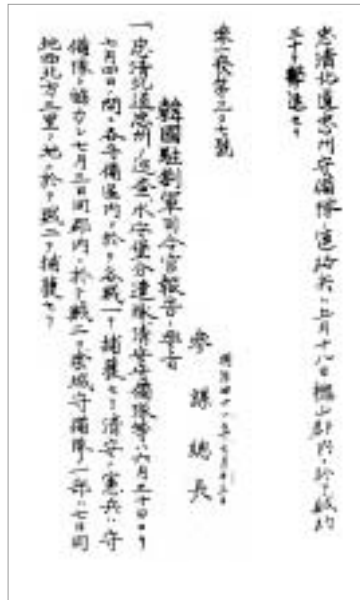 忠清北道忠州守備隊ノ憲補兵ハ五月十八日槐山郡内ニ於テ賊約
三十ヲ撃退セリ
參一發第三〇七號
明治四十一年七月十三日
參謀總長
韓國駐剳軍司令官報告ノ要旨
一忠清北道忠州ノ巡査水安堡分遣隊清安守備隊等ハ六月三十日ヨリ
七月四日ノ間ニ各守備區内ニ於テ各賊一ヲ捕獲セリ清安ノ憲兵ハ守
備隊ト協力シ七月三日同郡内ニ於テ賊二ヲ陰城守備隊ノ一部ハ七日同
地西北方三里ノ地ニ於テ賊二ヲ捕獲セリ